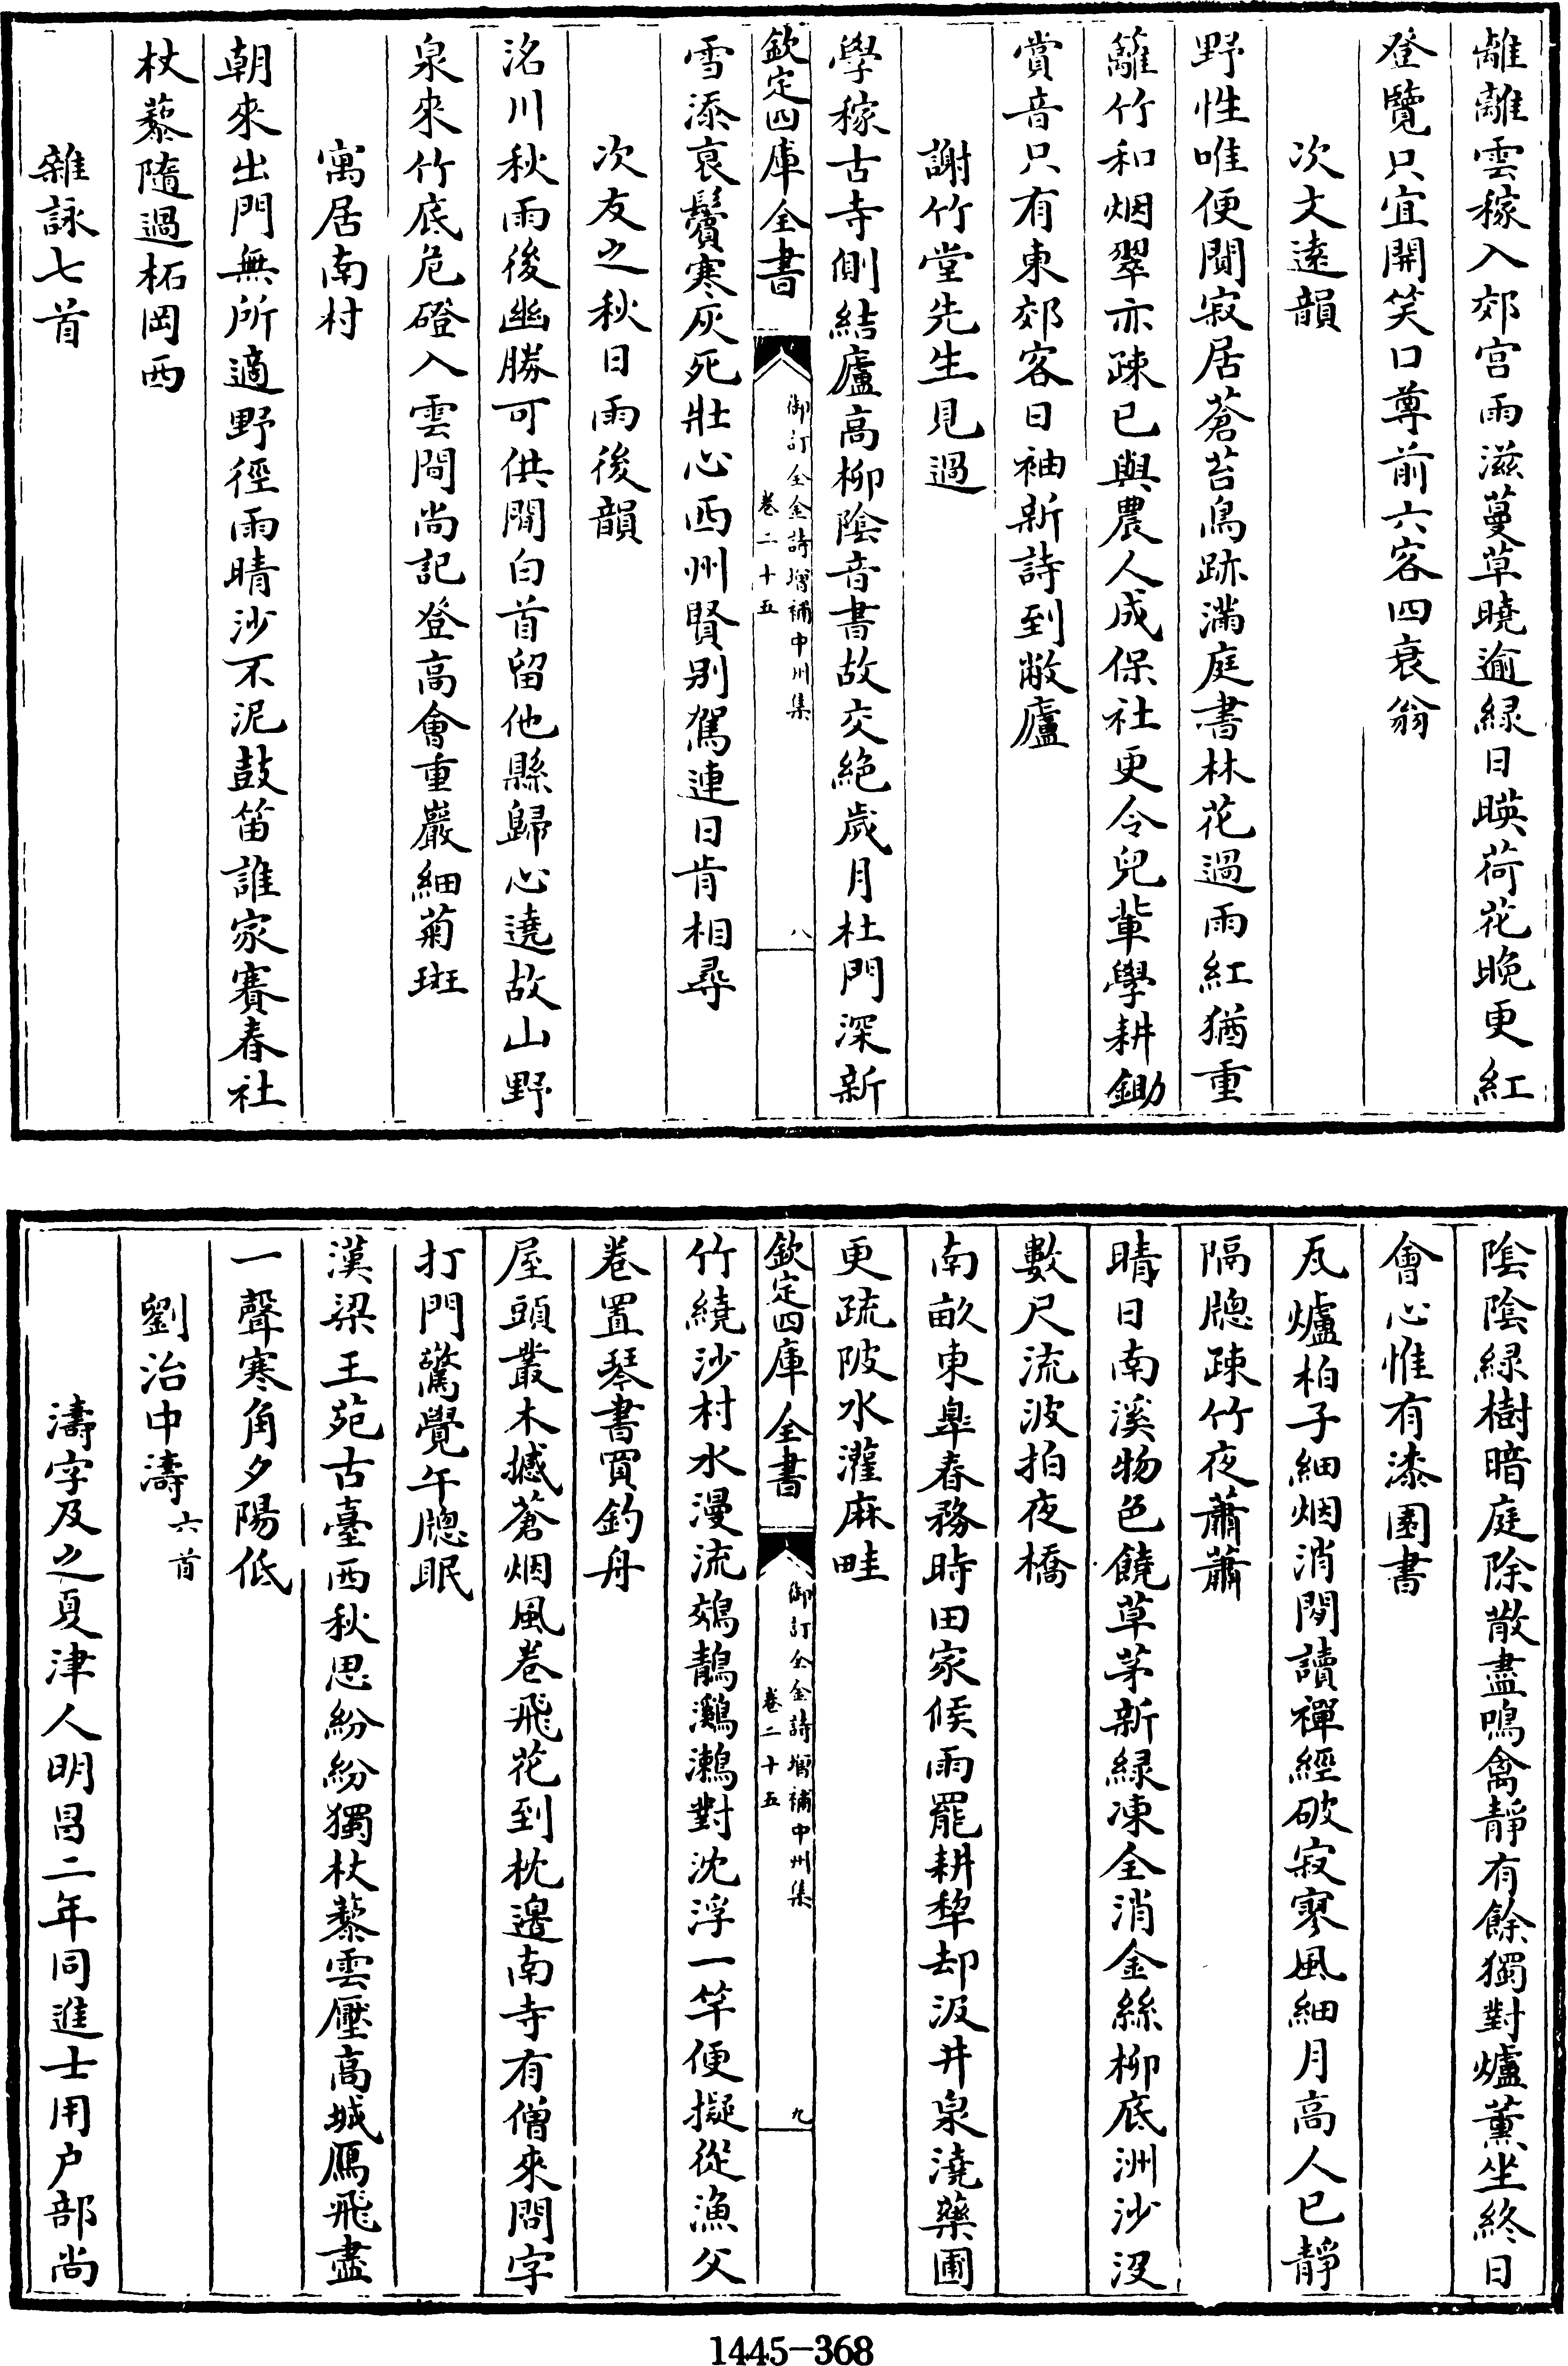 離離雲稼入郊宫雨滋蔓草曉逾緑日暎荷花晚更紅
登覽只宜開笑口尊前六客四衰翁
次文遠韻
野性唯便閴寂居蒼苔鳥跡滿庭書林花過雨紅猶重
籬竹和烟翠亦疎已與農人成保社更令兒輩學耕鋤
賞音只有東郊客日袖新詩到敝廬
謝竹堂先生見過
學稼古寺側結廬高柳陰音書故交絶歲月杜門深新
欽定四庫全書
御訂全金詩增補中州集
卷二十五
八
雪添哀鬢寒灰死壯心西州賢别駕連日肯相尋
次友之秋日雨後韻
洺川秋雨後幽勝可供閒白首留他縣歸心遶故山野
泉來竹底危磴入雲間尚記登高會重巖細菊斑
寓居南村
朝來出門無所適野徑雨晴沙不泥鼓笛誰家賽春社
杖藜隨過柘岡西
雜詠七首
陰陰緑樹暗庭除散盡鳴禽靜有餘獨對爐薰坐終日
會心惟有漆園書
瓦爐柏子細烟消閒讀禪經破寂寥風細月高人已靜
隔牕疎竹夜蕭蕭
晴日南溪物色饒草茅新緑凍全消金絲柳底洲沙沒
數尺流波拍夜橋
南畝東臯春務時田家候雨罷耕犂却汲井泉澆藥圃
更疏陂水灌麻畦
欽定四庫全書
御訂全金詩增補中州集
卷二十五
九
竹繞沙村水漫流鵁鶄鸂鷘對沈浮一竿便擬從漁父
卷置琴書買釣舟
屋頭叢木撼蒼烟風卷飛花到枕邉南寺有僧來問字
打門驚覺午牕眠
漢梁王苑古臺西秋思紛紛獨杖藜雲壓高城鴈飛盡
一聲寒角夕陽低
劉治中濤六首
濤字及之夏津人明昌二年同進士用户部尚
1445-368